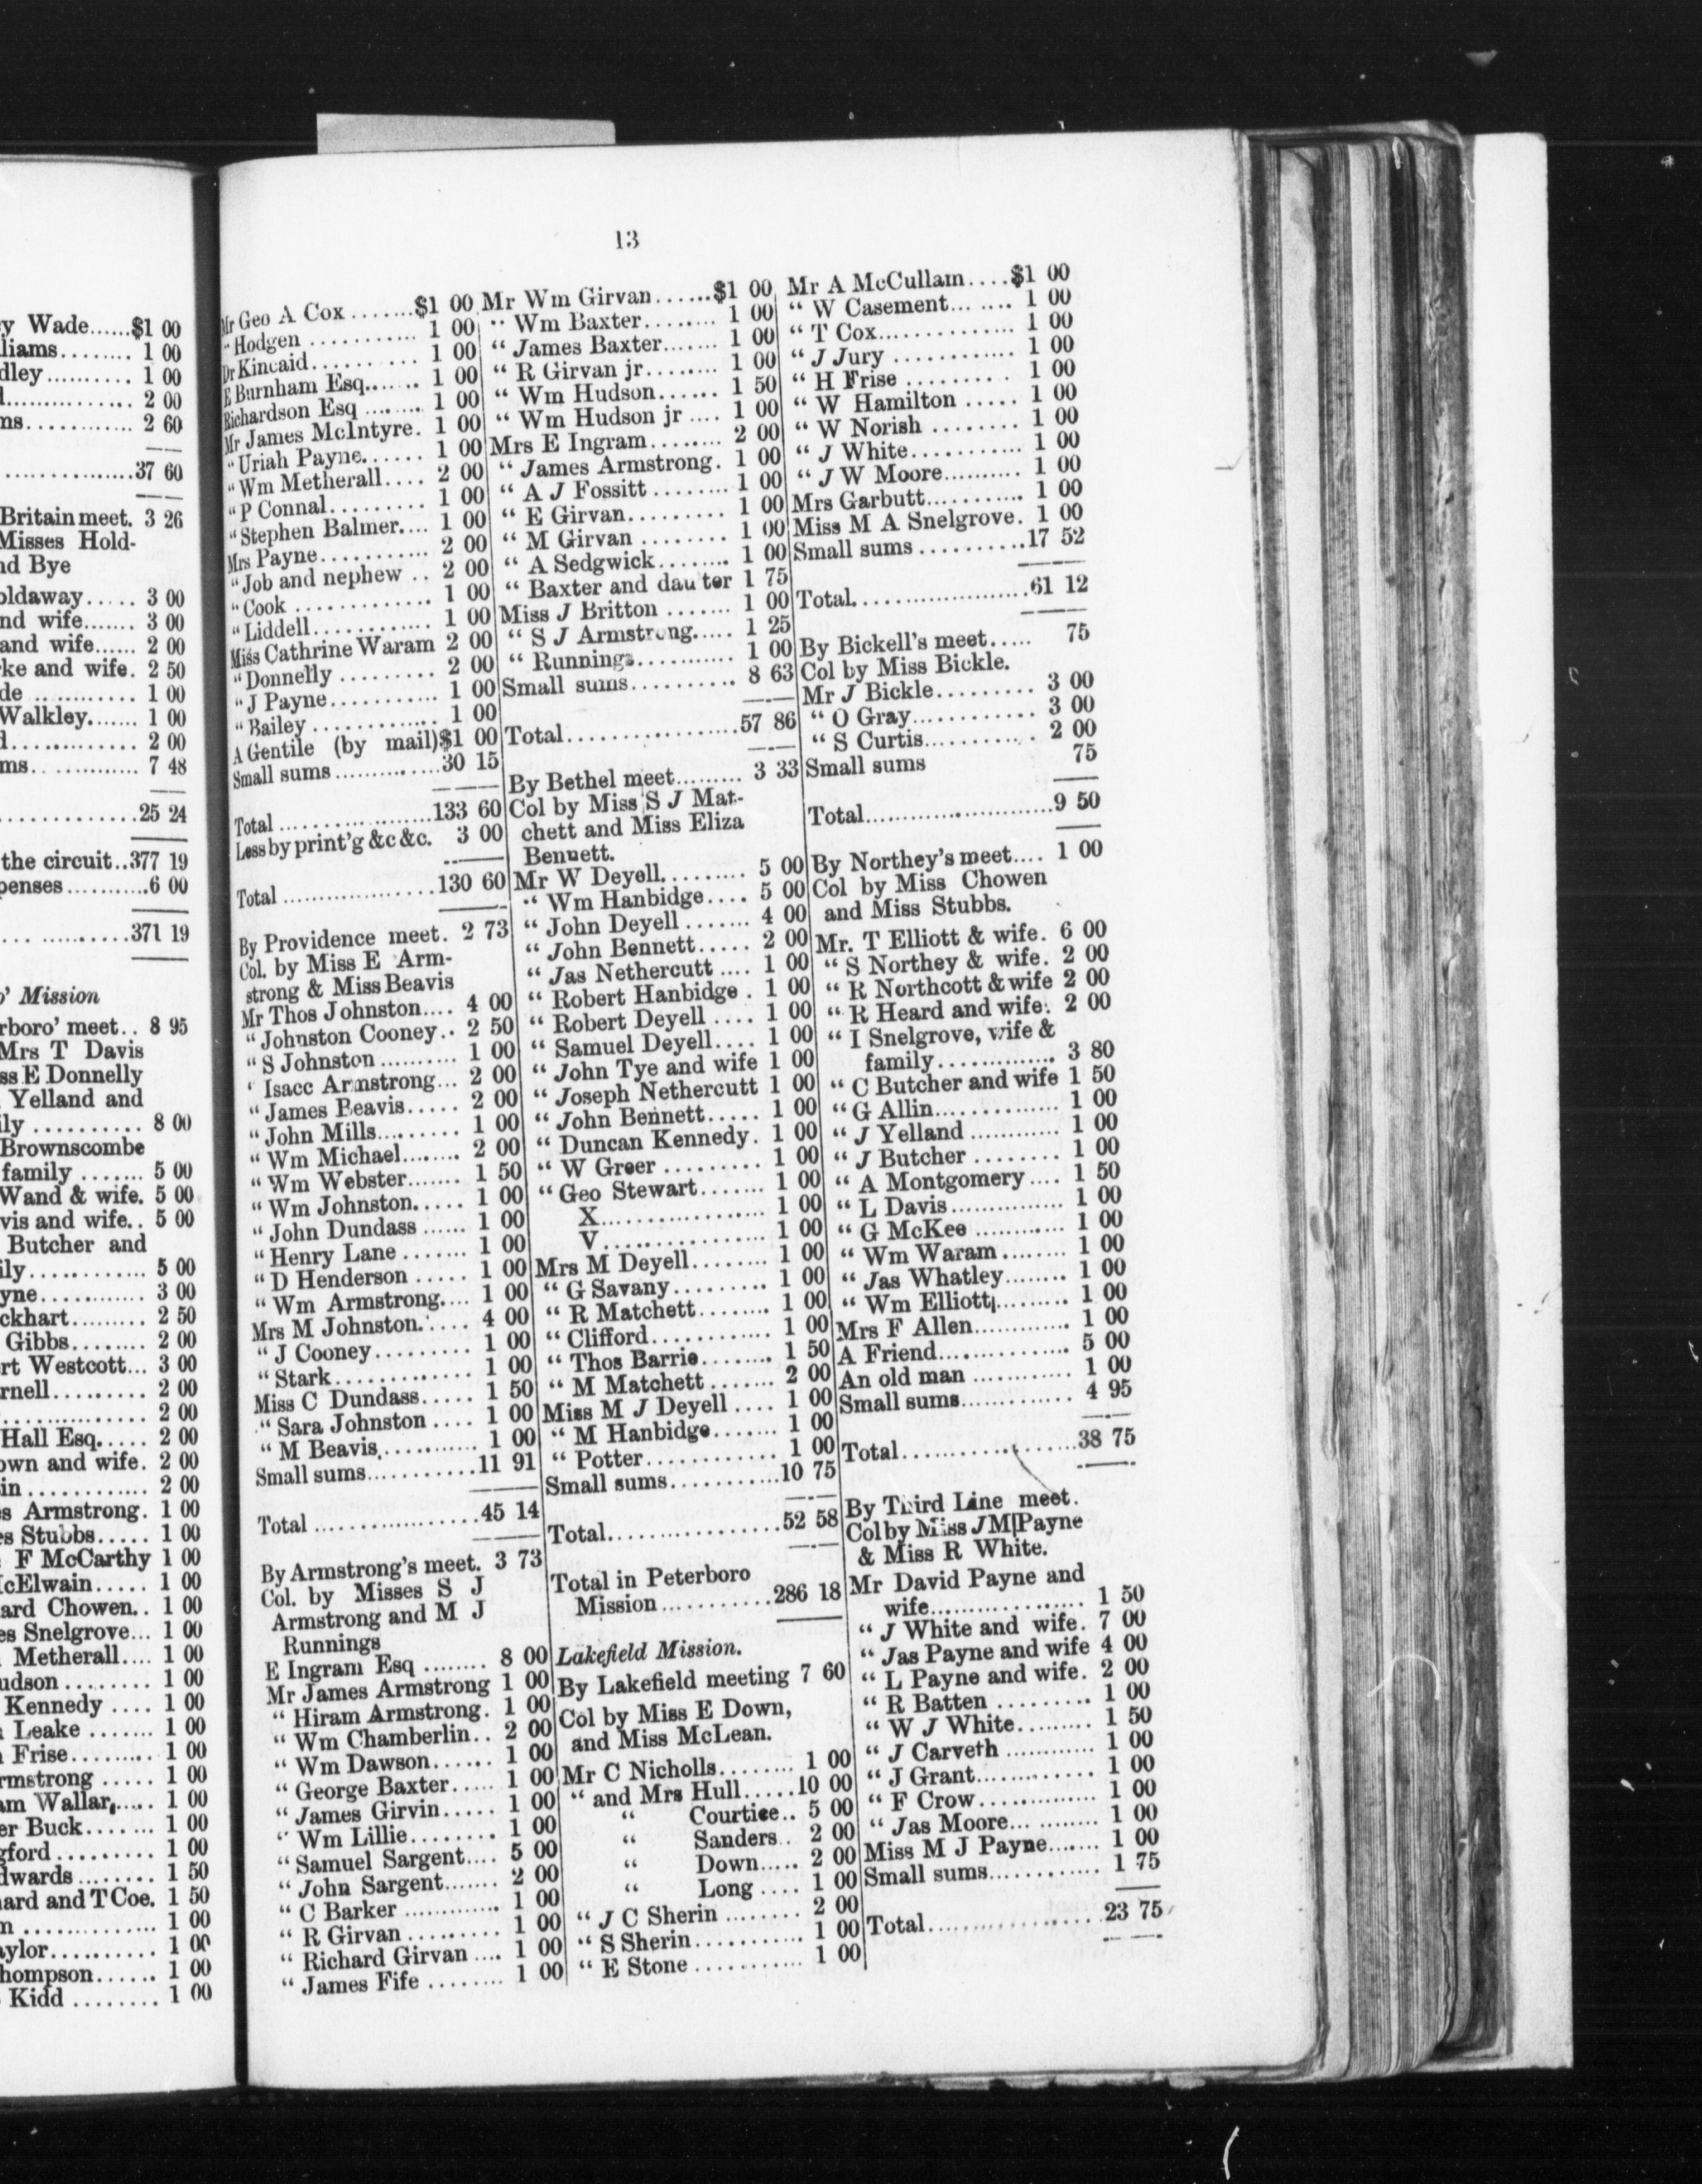 y Wade......$1 00
liams........ 1 00
dley.......... 1 00
............... 2 00
ns............ 2 60
...............37 60
Britain meet. 3 26
Misses Hold-
nd Bye
oldaway..... 3 00
nd wife....... 3 00
and wife...... 2 00
ke and wife. 2 50
de ............ 1 00
Walkley....... 1 00
l............. 2 00
ms............. 7 48
............25 24
the circuit..377 19
penses...........6 00
... ..........371 19
o' Mission
rboro' meet.. 8 95
Mrs T Davis
ss E Donnelly
Yelland and
ily .......... 8 00
Brownscombe
family ....... 5 00
Wand & wife. 5 00
vis and wife.. 5 00
Butcher and
ily............ 5 00
yne............ 3 00
ckhart......... 2 50
Gibbs........ 2 00
rt Westcott... 3 00
rnell......... 2 00
............... 2 00
Hall Esq..... 2 00
own and wife. 2 00
in ............ 2 00
s Armstrong. 1 00
es Stubbs..... 1 00
F McCarthy 1 00
McElwain..... 1 00
ard Chowen.. 1 00
es Snelgrove... 1 00
Metherall.... 1 00
udson ........ 1 00
Kennedy .... 1 00
Leake ....... 1 00
Frise......... 1 00
rmstrong ..... 1 00
am Wallar..... 1 00
er Buck....... 1 00
gford ......... 1 00
dwards ........ 1 50
ard and T Coe. 1 50
n .............. 1 00
aylor.......... 1 00
hompson...... 1 00
Kidd ........ 1 00
13
Mr Geo A Cox.......$1 00
" Hodgen ........... 1 00
Dr Kincaid.......... 1 00
E Burnham Esq...... 1 00
Richardson Esq ....... 1 00
Mr James McIntyre. 1 00
" Uriah Payne...... 1 00
" Wm Metherall.... 2 00
" P Connal......... 1 00
" Stephen Balmer.... 1 00
Mrs Payne........... 2 00
" Job and nephew .. 2 00
" Cook ............. 1 00
" Liddell............ 1 00
Miss Cathrine Waram 2 00
" Donnelly ......... 2 00
" J Payne........... 1 00
" Bailey ............ 1 00
A Gentile (by mail)$1 00
Small sums...........30 15
Total ...................133 60
Less by print'g &c &c. 3 00
Total .................130 60
By Providence meet. 2 73
Col. by Miss E Arm-
strong & Miss Beavis
Mr Thos Johnston.... 4 00
" Johnston Cooney.. 2 50
" S Johnston .......... 1 00
" Isacc Armstrong... 2 00
" James Beavis..... 2 00
" John Mills......... 1 00
" Wm Michael....... 2 00
" Wm Webster....... 1 50
" Wm Johnston..... 1 00
" John Dundass ...... 1 00
" Henry Lane ....... 1 00
" D Henderson ..... 1 00
" Wm Armstrong.... 1 00
Mrs M Johnston...... 4 00
" J Cooney.......... 1 00
" Stark.............. 1 00
Miss C Dundass...... 1 50
" Sara Johnston .... 1 00
" M Beavis........... 1 00
Small sums...........11 91
Total .................45 14
By Armstrong's meet. 3 73
Col. by Misses S J
Armstrong and M J
Runnings
E Ingram Esq ........ 8 00
Mr James Armstrong 1 00
" Hiram Armstrong. 1 00
" Wm Chamberlin.. 2 00
" Wm Dawson...... 1 00
" George Baxter..... 1 00
" James Girvin..... 1 00
" Wm Lillie........ 1 00
" Samuel Sargent.... 5 00
" John Sargent....... 2 00
" C Barker ............. 1 00
" R Girvan .......... 1 00
" Richard Girvan .... 1 00
" James Fife ........ 1 00
Mr Wm Girvan......$1 00
" Wm Baxter........ 1 00
" James Baxter....... 1 00
" R Girvan jr........ 1 00
" Wm Hudson...... 1 50
" Wm Hudson jr .... 1 00
Mrs E Ingram........ 2 00
" James Armstrong. 1 00
" A J Fossitt ........ 1 00
" E Girvan......... 1 00
" M Girvan ........ 1 00
" A Sedgwick....... 1 00
" Baxter and dau ter 1 75
Miss J Britton ....... 1 00
" S J Armstrong..... 1 25
" Runnings........... 1 00
Small sums.......... 8 63
Total.................57 86
By Bethel meet......... 3 33
Col by Miss S J Mat-
chett and Miss Eliza
Bennett.
Mr W Deyell......... 5 00
" Wm Hanbidge.... 5 00
" John Deyell ....... 4 00
" John Bennett..... 2 00
" Jas Nethercutt .... 1 00
" Robert Hanbidge . 1 00
" Robert Deyell .... 1 00
" Samuel Deyell.... 1 00
" John Tye and wife 1 00
" Joseph Nethercutt 1 00
" John Bennett..... 1 00
" Duncan Kennedy. 1 00
" W Greer ......... 1 00
" Geo Stewart....... 1 00
X................. 1 00
V................. 1 00
Mrs M Deyell........ 1 00
" G Savany.......... 1 00
" R Matchett........ 1 00
" Clifford............ 1 00
" Thos Barrie........ 1 50
" M Matchett ....... 2 00
Miss M J Deyell .... 1 00
" M Hanbidge....... 1 00
" Potter............. 1 00
Small sums..........10 75
Total.................52 58
Total in Peterboro
Mission...........286 18
Lakefield Mission.
By Lakefield meeting 7 60
Col by Miss E Down,
and Miss McLean.
Mr C Nicholls........ 1 00
" and Mrs Hull.....10 00
" Courtice.. 5 00
" Sanders.. 2 00
" Down..... 2 00
" Long .... 1 00
" J C Sherin ........ 2 00
" S Sherin........... 1 00
" E Stone ........... 1 00
Mr A McCullam....$1 00
" W Casement....... 1 00
" T Cox.............. 1 00
" J Jury ............ 1 00
" H Frise .......... 1 00
" W Hamilton ..... 1 00
" W Norish ........ 1 00
" J White........... 1 00
" J W Moore.......... 1 00
Mrs Garbutt........... 1 00
Miss M A Snelgrove. 1 00
Small sums ..........17 52
Total....................61 12
By Bickell's meet..... 75
Col by Miss Bickle.
Mr J Bickle.......... 3 00
" O Gray............ 3 00
" S Curtis........... 2 00
Small sums 75
Total.....................9 50
By Northey's meet.... 1 00
Col by Miss Chowen
and Miss Stubbs.
Mr. T Elliott & wife. 6 00
" S Northey & wife. 2 00
" R Northcott & wife 2 00
" R Heard and wife. 2 00
" I Snelgrove, wife &
family............. 3 80
" C Butcher and wife 1 50
" G Allin.............. 1 00
" J Yelland ............ 1 00
" J Butcher ........ 1 00
" A Montgomery.... 1 50
" L Davis............... 1 00
" G McKee ........... 1 00
" Wm Waram........ 1 00
" Jas Whatley........ 1 00
" Wm Elliott......... 1 00
Mrs F Allen............. 1 00
A Friend................ 5 00
An old man ............ 1 00
Small sums............. 4 95
Total....................38 75
By Third Line meet.
Col by Miss J M Payne
& Miss R White.
Mr David Payne and
wife.................. 1 50
" J White and wife. 7 00
" Jas Payne and wife 4 00
" L Payne and wife. 2 00
" R Batten .......... 1 00
" W J White......... 1 50
" J Carveth ............ 1 00
" J Grant............. 1 00
" F Crow.............. 1 00
" Jas Moore........... 1 00
Miss M J Payne....... 1 00
Small sums............ 1 75
Total....................23 75